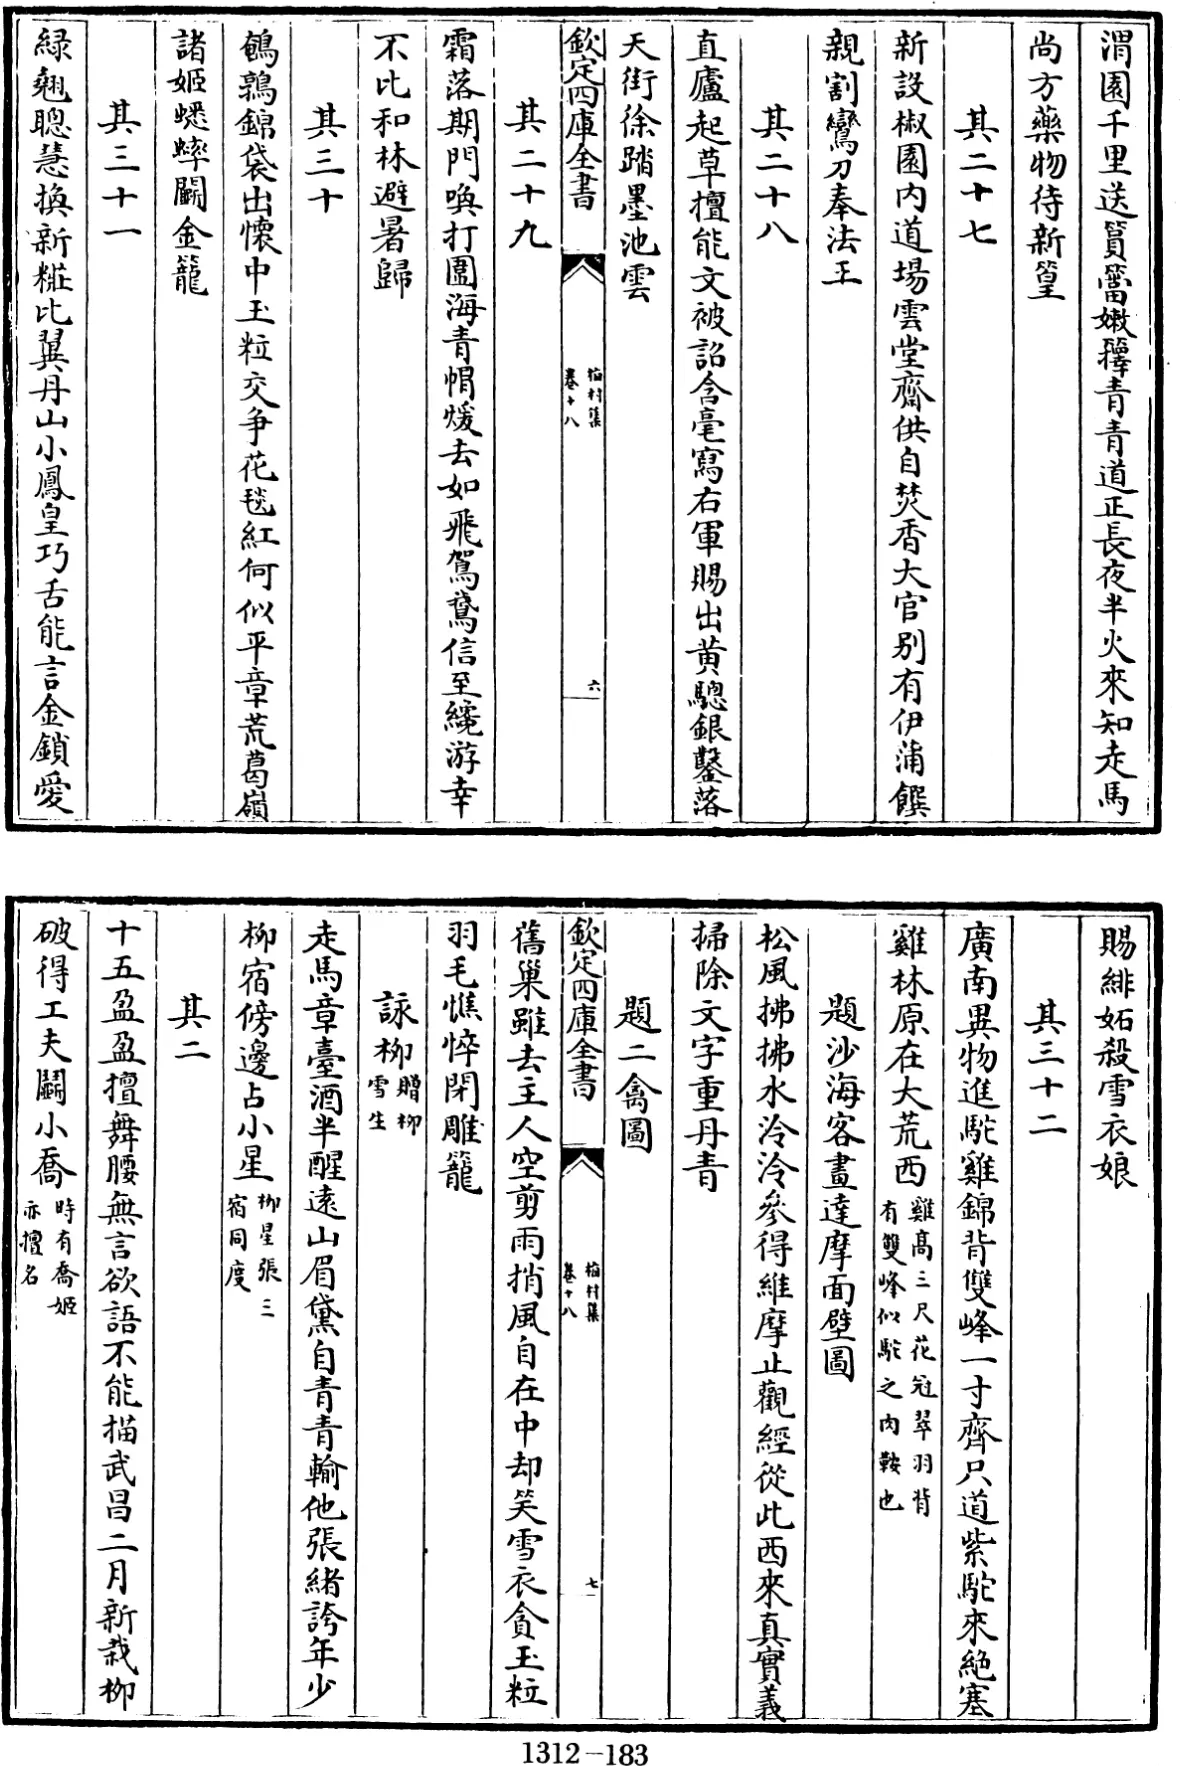 渭園千里送篔簹嫩籜青青道正長夜半火來知走馬
尚方藥物待新篁
其二十七
新設椒園内道場雲堂齋供自焚香大官别有伊蒲饌
親割鸞刀奉法王
其二十八
直廬起草擅能文被詔含毫寫右軍賜出黄驄銀鑿落
天街徐踏墨池雲
欽定四庫全書
梅村集
卷十八
六
其二十九
霜落期門喚打圍海青帽煖去如飛鴛鵞信至纔游幸
不比和林避暑歸
其三十
鵪鶉錦袋出懷中玉粒交争花毯紅何似平章荒葛嶺
諸姬蟋蟀鬭金籠
其三十一
緑翹聰慧換新糚比翼丹山小鳳皇巧舌能言金鎖愛
賜緋妬殺雪衣娘
其三十二
廣南異物進駝雞錦背雙峰一寸齊只道紫駝來絶塞
雞林原在大荒西雞髙三尺花冠翠羽背
有雙峰似駝之肉鞍也
題沙海客畫達摩面壁圖
松風拂拂水泠泠參得維摩止觀經從此西來真實義
掃除文字重丹青
題二禽圖
欽定四庫全書
梅村集
卷十八
七
舊巢雖去主人空剪雨捎風自在中却笑雪衣貪玉粒
羽毛憔悴閉雕籠
詠柳贈柳
雪生
走馬章臺酒半醒逺山眉黛自青青輸他張緒誇年少
柳宿傍邊占小星栁星張三
宿同度
其二
十五盈盈擅舞腰無言欲語不能描武昌二月新栽柳
破得工夫鬭小喬時有喬姬
亦擅名
1312-183